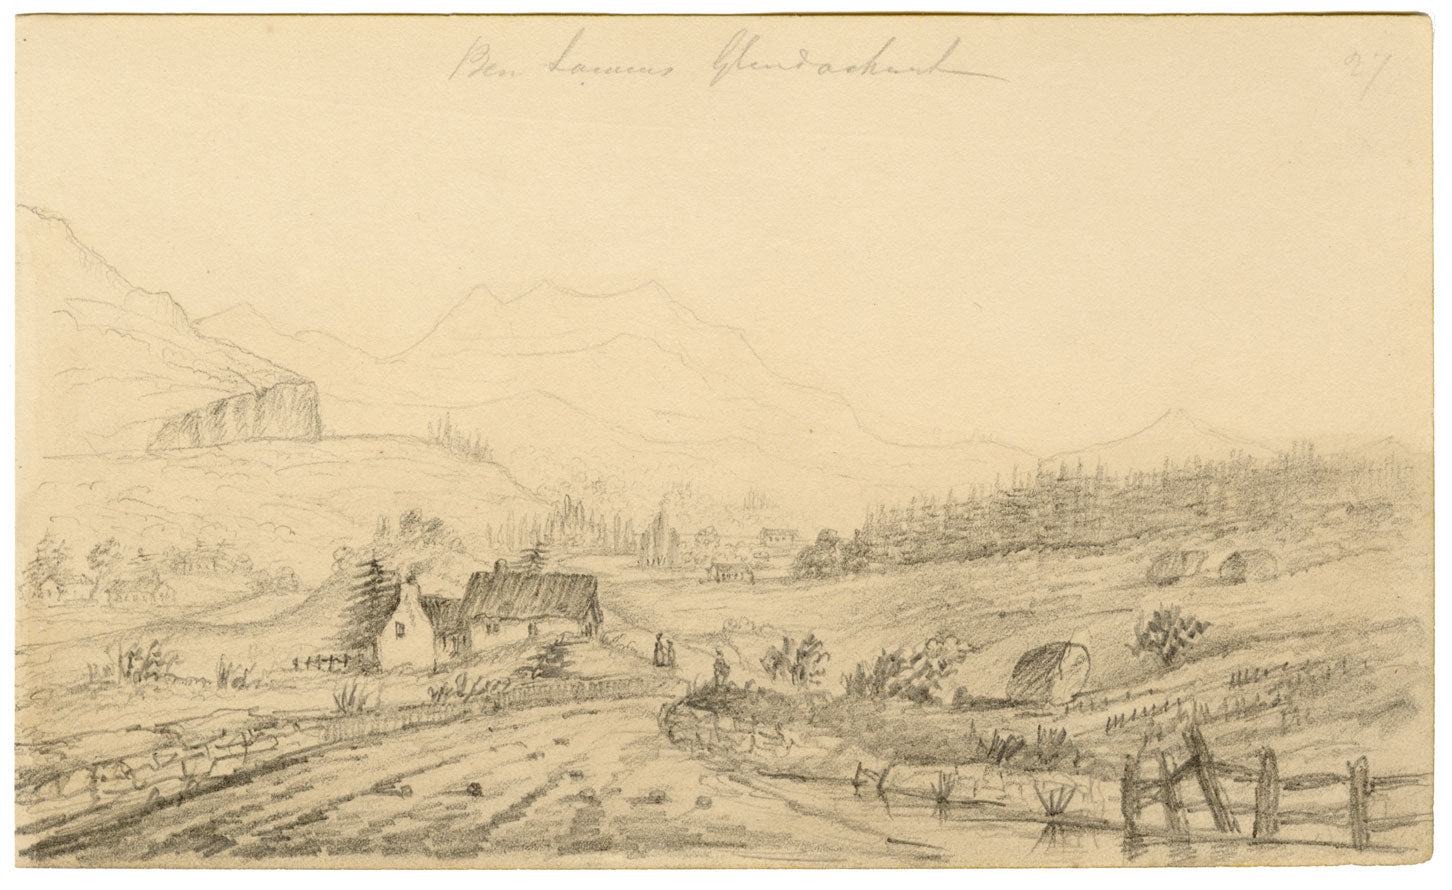 Ben Lawers Glendochart
27